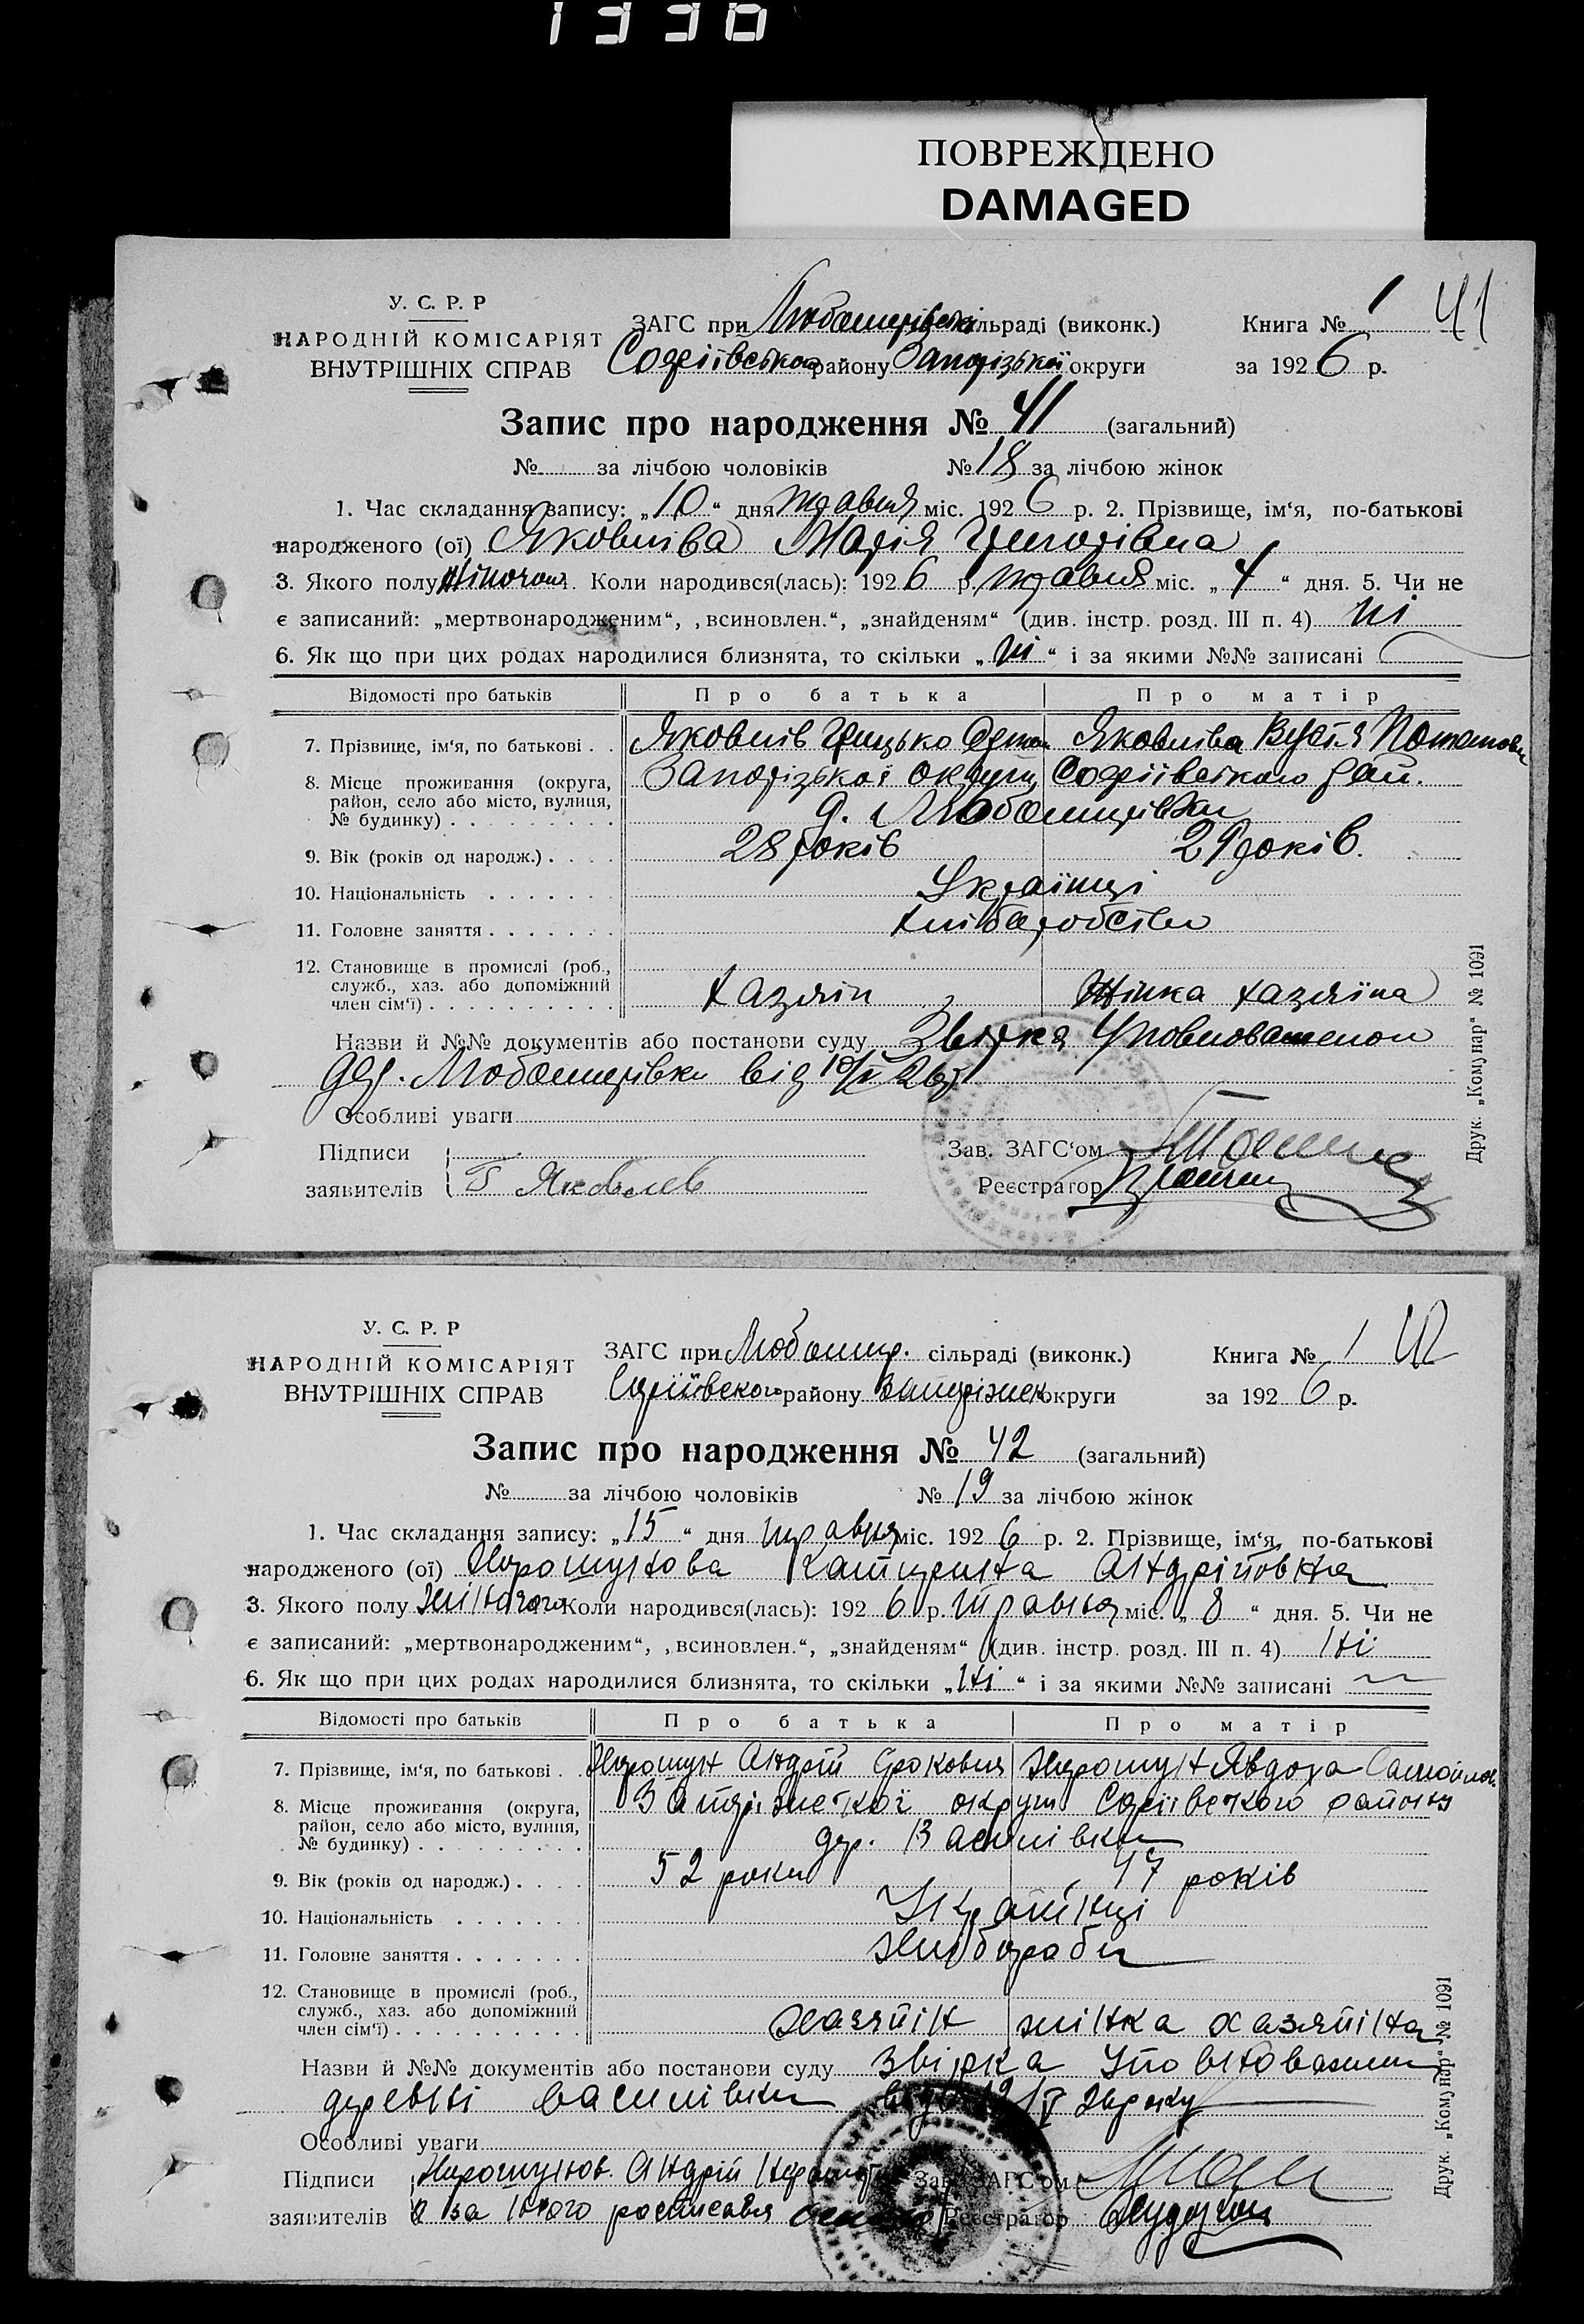 1336
ПОВРЕЖДЕНО
DAMAGED
41
У. С. Р. Р
НАРОДНІЙ КОМІСАРІЯТ
ВНУТРІШНІХ СПРАВ
ЗАГС при Любомирівській сільраді (виконк.)
Софіївського району Запорізької округи
Книга № 1
за 1926 р.
Запис про народження № 41 (загальний)
№ за лічбою чоловіків № 18 за лічбою жінок
1. Час складання запису: „10“ дня травня міс. 1926 р. 2. Прізвище, ім‘я, по-батькові
народженого (ої) Яковліва Марія Григорівна
3. Якого полу жіночого 4. Коли народився(лась): 1926 р. травня міс. „4“ дня. 5. Чи не
є записаний: „мертвонародженим“, „всиновлен.“, „знайденям“ (див. інстр. розд. III п. 4) ні
6. Як що при цих родах народилися близнята, то скільки „ні“ і за якими №№ записані
Відомості про батьків Про батька Про матір
7. Прізвище, ім‘я, по батькові . . Яковлів Грицько Яковліва
8. Місце проживання (округа, район, село або місто, вулиця, № будинку) . . . . . . . . . Запорізької округи, Софіївського рай.
д. Любомирівки
9. Вік (років од народж.) . . . . 28 років 29 років.
10. Національність . . . . . . . Українці
11. Головне заняття . . . . . . . Хліборобство
12. Становище в промислі (роб., служб., хаз. або допоміжний член сім‘ї) . . . . . . . . . . Хазяїн Жінка хазяїна
Назви й №№ документів або постанови суду Звірка Уповноваженого
дер. Любомирівки від 10/V 26 р.
Особливі уваги
Підписи
заявителів Г Яковлев
Зав. ЗАГС‘ом
Реєстратор
Друк. „Комунар“ № 1091
У. С. Р. Р
НАРОДНІЙ КОМІСАРІЯТ
ВНУТРІШНІХ СПРАВ
ЗАГС при Любомир. сільраді (виконк.)
району округи
Книга № 1 42
за 1926 р.
Запис про народження № 42 (загальний)
№ за лічбою чоловіків № 19 за лічбою жінок
1. Час складання запису: „15“ дня травня міс. 1926 р. 2. Прізвище, ім‘я, по-батькові
народженого (ої) Катирина Андрійовна
3. Якого полу жіночого 4. Коли народився(лась): 1926 р. травня міс. „8“ дня. 5. Чи не
є записаний: „мертвонародженим“, „всиновлен.“, „знайденям“ (див. інстр. розд. III п. 4) ні
6. Як що при цих родах народилися близнята, то скільки „ні“ і за якими №№ записані
Відомості про батьків Про батька Про матір
7. Прізвище, ім‘я, по батькові . . Андрій Явдоха
8. Місце проживання (округа, район, село або місто, вулиця, № будинку) . . . . . . . . . округи району
дер. Василівки
9. Вік (років од народж.) . . . . 52 роки 47 років
10. Національність . . . . . . . Українці
11. Головне заняття . . . . . . . хлібороби
12. Становище в промислі (роб., служб., хаз. або допоміжний член сім‘ї) . . . . . . . . . . хазяйін жінка хазяйіна
Назви й №№ документів або постанови суду звірка
деревні василівки
Особливі уваги
Підписи Андрій
заявителів а за нього
Зав. ЗАГС‘ом
Реєстратор
Друк. „Комунар“ № 1091